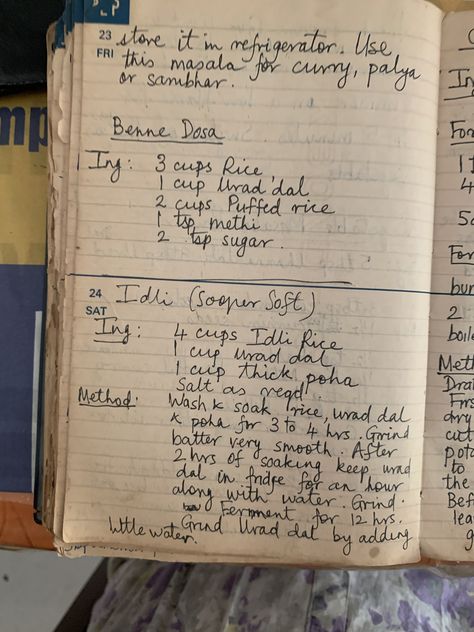 23
FRI
store it in refrigerator. Use
this masala for curry, palya
or sambhar.
Benne Dosa
Ing: 3 cups Rice
1 cup Urad dal
2 cups Puffed rice
1 tsp methi
2 tsp sugar.
24
SAT
Idli (Sooper Soft)
Ing: 4 cups Idli Rice
1 cup urad dal
1 cup thick poha
Salt as reqd.
Method. Wash & soak rice, urad dal
& poha for 3 to 4 hrs. Grind
batter very smooth. After
2 hrs of soaking keep urad
dal in fridge for an hour
along with water. Grind.
Ferment for 12 hrs.
Grind Urad dal by adding
little water.
mp
Ing
For
For
2
Meth